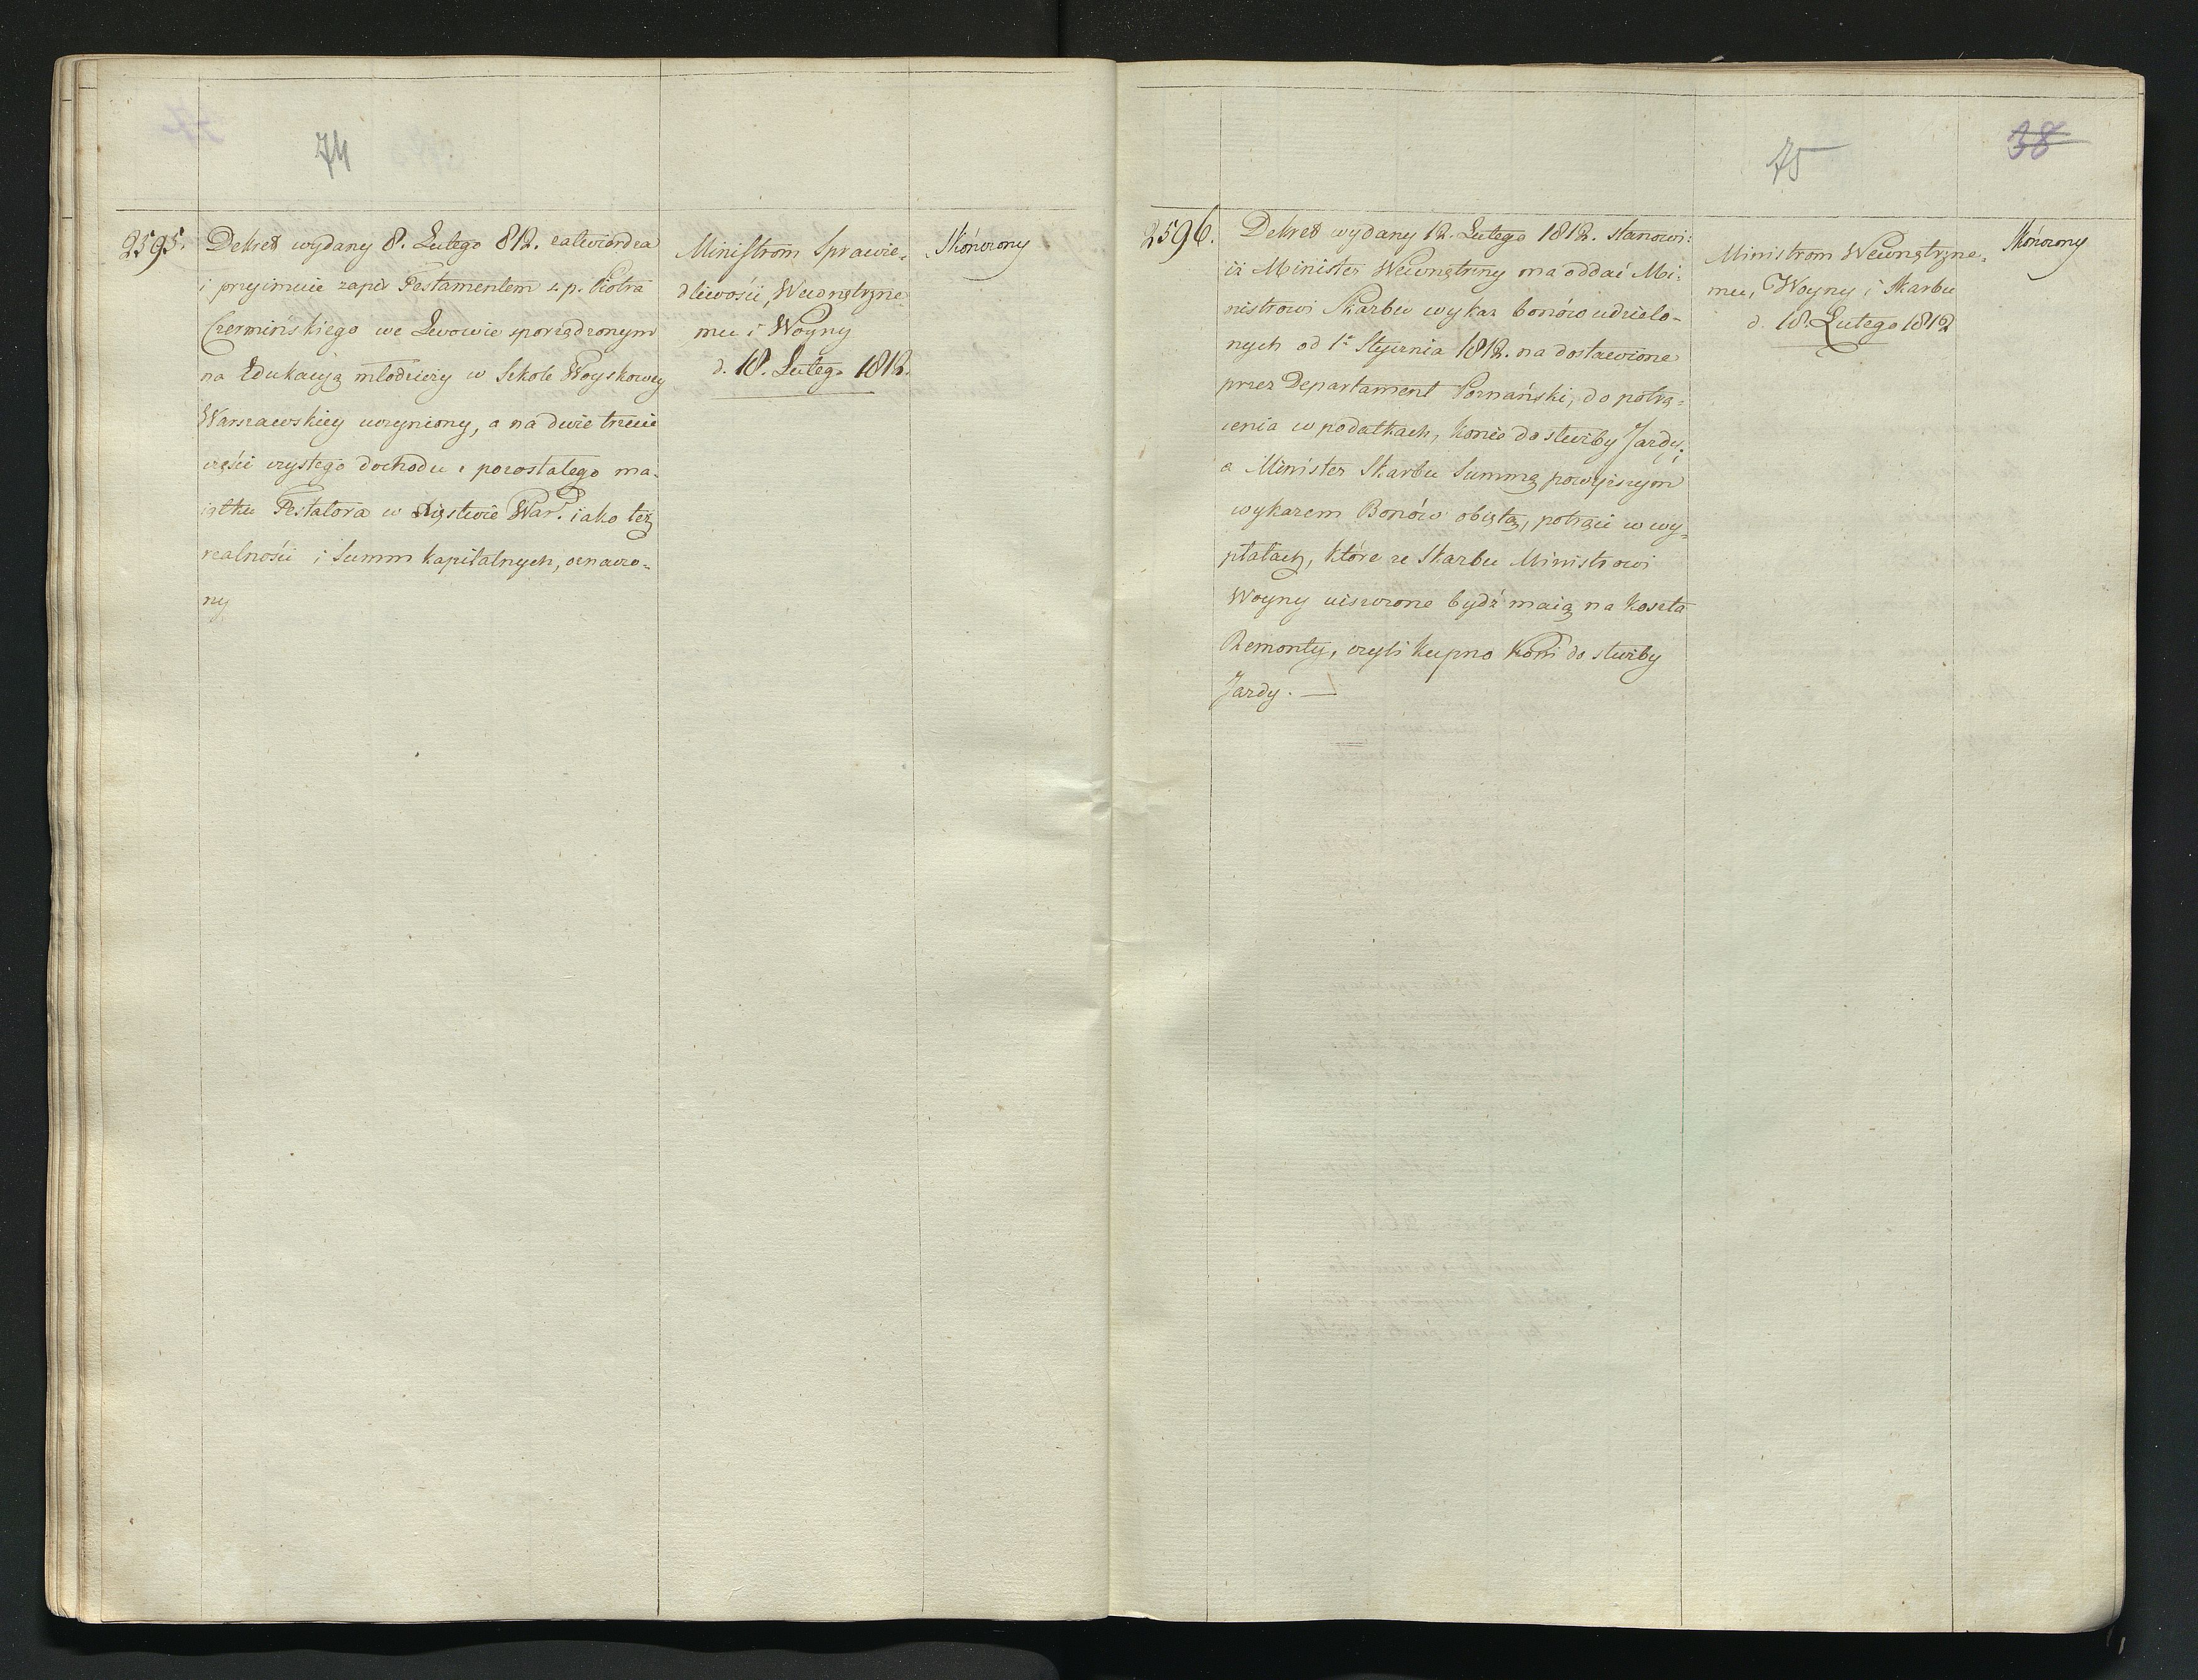 74
2595.
Dekret wydany 8. Lutego 812. zatwierdza
i przyimuie zapis Testamentem s. p. Piotra
Czermińskiego we Lwowie sporządzonym
na Edukacyą młodzieży w Szkole Woyskowey
Warszawskiey uczyniony, a na dwie trzecie
części czystego dochodu z pozostałego ma-
iątku Testatora w Xięstwie War. iako też
realności i Summ kapitalnych, oznaczo-
ny
Ministrom Sprawie-
dliwości, Wewnętrzne
mu i Woyny
d. 18. Lutego 1812.
Skończony
75
38
2596.
Dekret wydany 12. Lutego 1812. stanowi:
iż Minister Wewnętrzny ma oddać Mi-
nistrowi Skarbu wykaz bonów udzielo-
nych od 1o Stycznia 1812. na dostawione
przez Departament Poznański, do potrą-
cenia w podatkach, konie do służby Jazdy;
a Minister Skarbu Summę powyższym
wykazem Bonów obiętą, potrąci w wy-
płatach, które ze Skarbu Ministrowi
Woyny uiszczone bydź maią na koszta
Remonty, czyli kupno koni do służby
Jazdy. —
Ministrom Wewnętrzne-
mu, Woyny i Skarbu
d. 18. Lutego 1812
Skończony